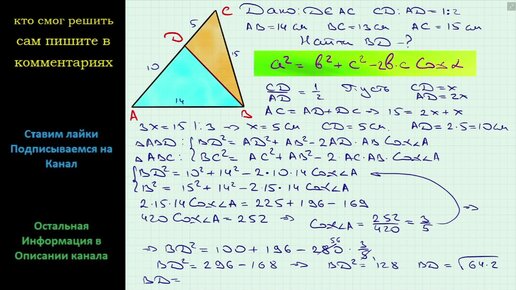 кто смог решить
сам пишите в
комментариях
Ставим лайки
Подписываемся на
Канал
Остальная
Информация в
Описании канала
C
5
D
15
10
14
A
B
Дано: D∈AC CD:AD=1:2
AB=14см BC=13см AC=15см
Найти BD-?
a²=b²+c²-2b·c Cosα
CD/AD=1/2 Пусть CD=x
AD=2x
AC=AD+DC => 15=2x+x
3x=15 |:3 => x=5см CD=5см AD=2·5=10см
△ABD: {BD²=AD²+AB²-2AD·AB Cos∠A
△ABC: {BC²=AC²+AB²-2·AC·AB·Cos∠A
{BD²=10²+14²-2·10·14 Cos∠A
{13²=15²+14²-2·15·14 Cos∠A
2·15·14 Cos∠A=225+196-169
420 Cos∠A=252 => Cos∠A=252/420=3/5
=> BD²=100+196-280·3/5
56
BD²=296-168 => BD²=128 BD=√64·2
BD=